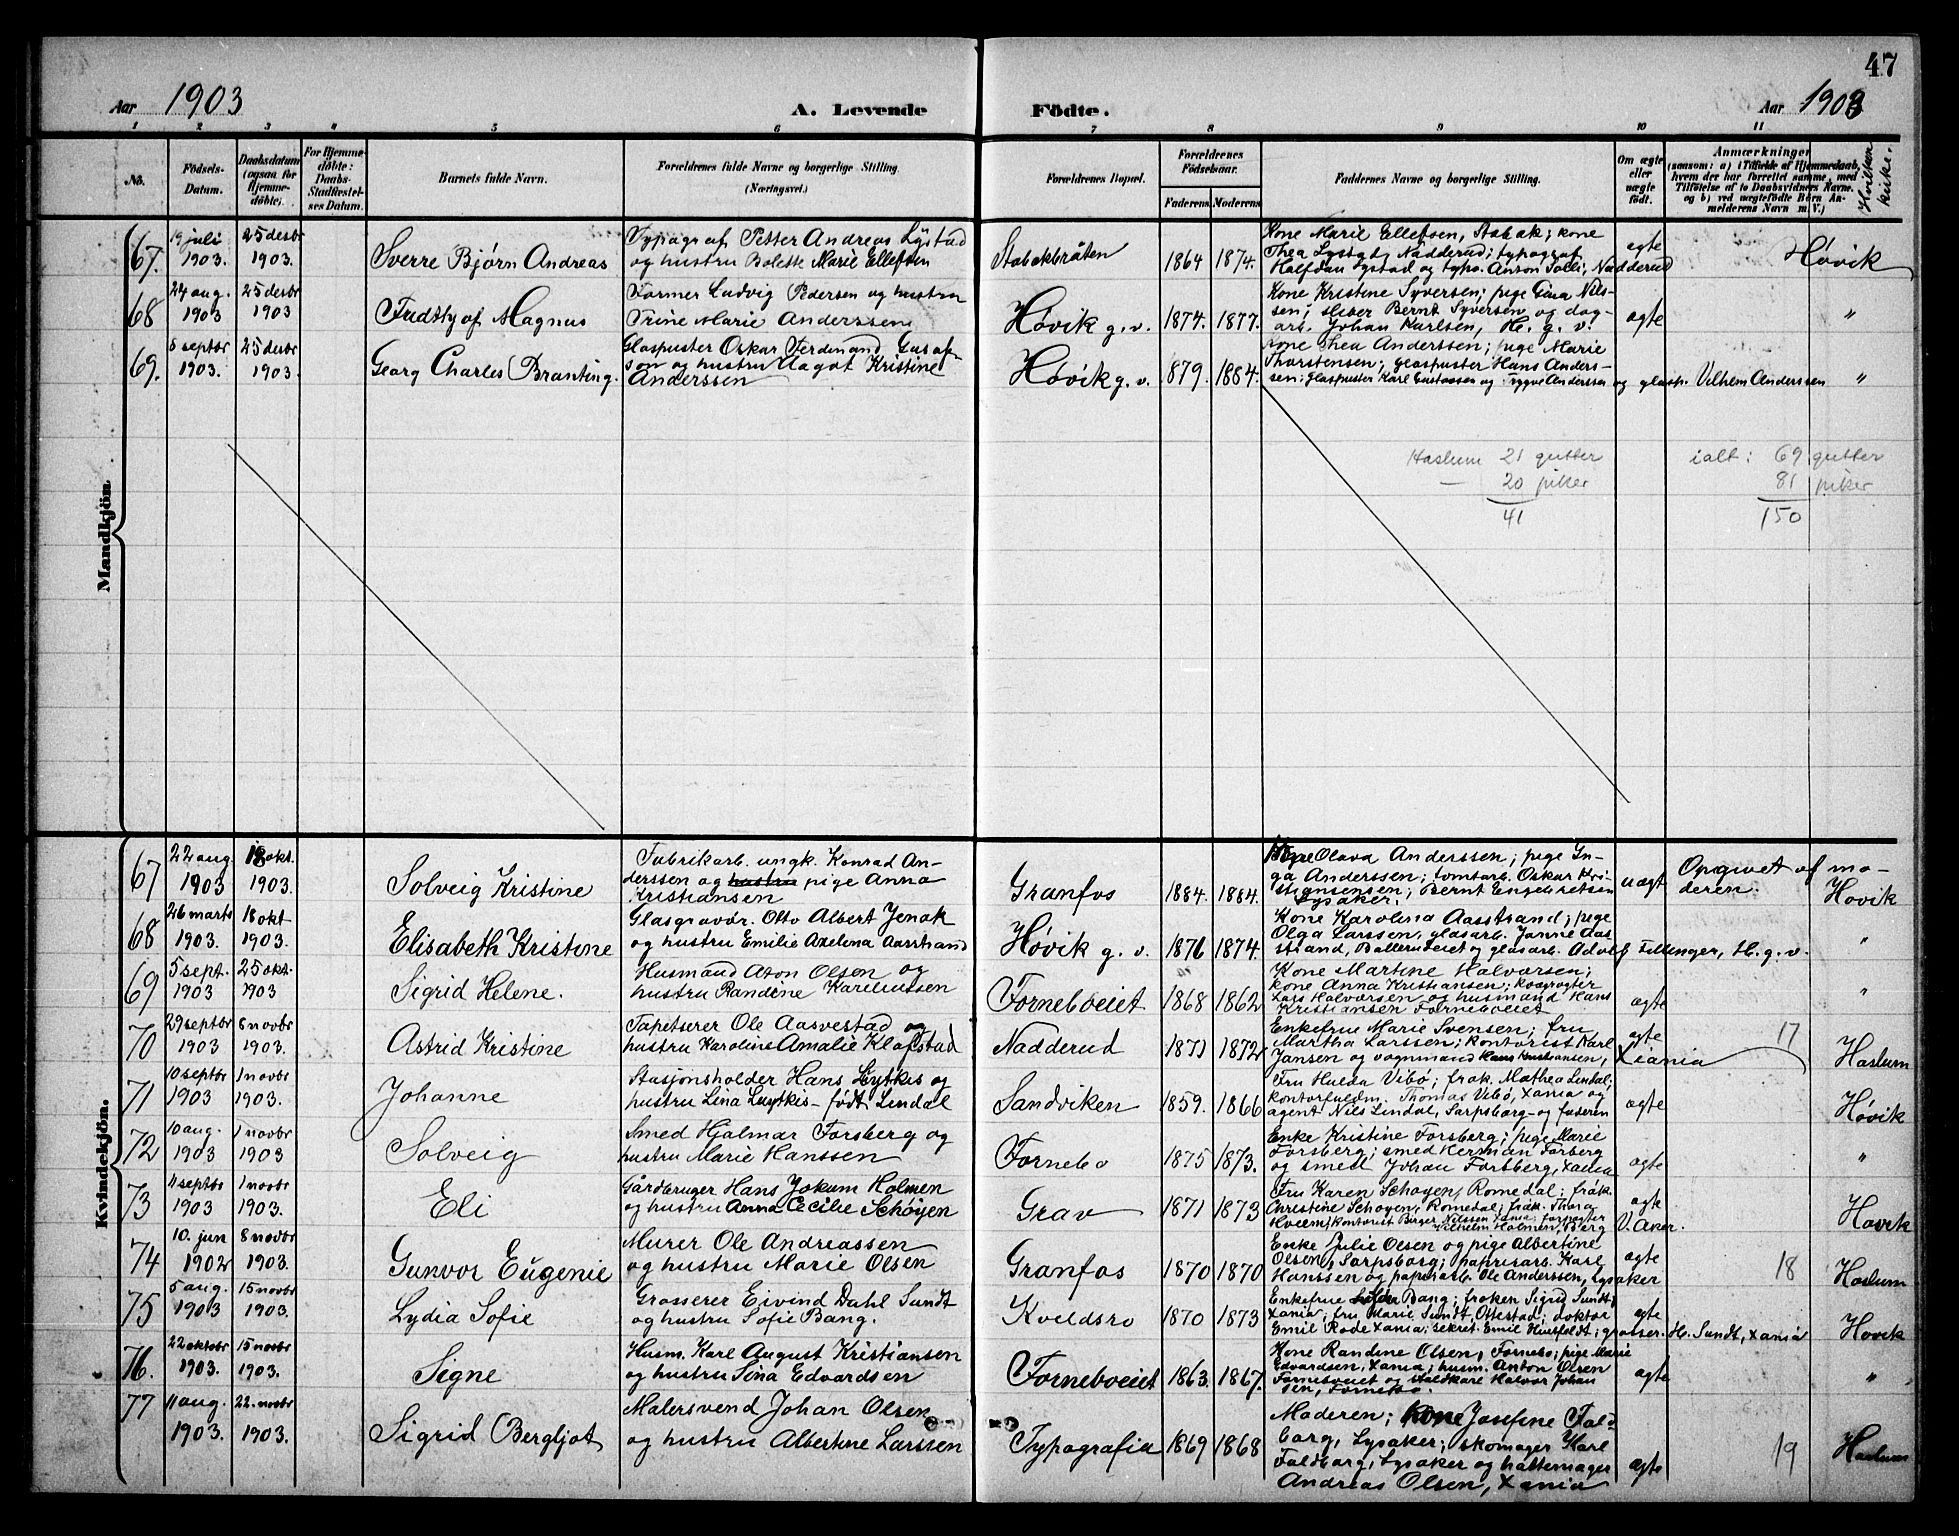 47
Aar 1903
A. Levende
Födte.
Aar 1903
1 2 3 4 5 6 7 8 9 10 11
No.
Födsels-Datum.
Daabsdatum (ogsaa for Hjemme-döbte).
For Hjemme-döbte: Daabs-Stadfæstelses Datum.
Barnets fulde Navn.
Forældrenes fulde Navne og borgerlige Stilling. (Næringsvei.)
Forældrenes Bopæl.
Forældrenes Födselsaar.
Faderens. Moderens.
Faddernes Navne og borgerlige Stilling.
Om ægte eller uægte födt.
Anmærkninger
(saasom: a) i Tilfælde af Hjemmedaab, hvem der har forrettet samme, med Tilföielse af to Daabsvidners Navne. og b) ved uægtefödte Börn Anmelderens Navn m. V.)
Hvilken kirke.
Mandkjön.
67. 19 juli 1903. 25 desbr 1903. Sverre Bjørn Andreas
Typograf Petter Andreas Lystad
og hustru Bolette Marie Ellefsen
Stabækbråten 1864 1874.
Kone Marie Ellefsen, Stabæk; kone
Thea Lystad, Nadderud; typograf
Halfdan Lystad og typo. Anton Solli, Nadderud
ægte Høvik
68 24 aug. 1903 25 desbr 1903 Fridtyof Magnus
Former Ludvig Pedersen og hustru
Trine Marie Anderssen
Høvik g. v. 1874. 1877.
Kone Kristine Syversen; pige Gina Nils-
sen; sliber Bernt Syversen og dag-
arb. Johan Karlsen, H. g. v.
ægte "
69. 5 septbr 1903. 25 desbr 1903. Georg Charles Branting.
Glaspuster Oskar Ferdinand Gustaf-
son og hustru Aagot Kristine
Anderssen
Høvik g. v. 1879. 1884.
Kone Thea Anderssen; pige Marie
Thorstensen; glaspuster Hans Anders-
sen; Glaspuster Karl Gustavsen og Trygve Anderssen og glasp. Vilhelm Anderssen "
Haslum 21 gutter
— 20 piker
41
ialt: 69 gutter
81 piker
150
Kvindekjön.
67 22 aug. 1903 18 okt. 1903. Solveig Kristine
Fabrikarb. ungk. Konrad An-
derssen og hustru pige Anna
Kristiansen
Granfos 1884. 1884.
Pige Olava Anderssen; pige In-
ga Anderssen; tomtarb. Oskar Kri-
stiansensen; Bernt Engebretsen
Lysaker.
uægt Opgivet af mo-
deren. Høvik
68 26 marts 1903. 18 okt 1903. Elisabeth Kristine
Glasgravør. Otto Albert Jenak
og hustru Emilie Axelena Aasstrand
Høvik g. v. 1876 1874.
Kone Karolina Aasstrand; pige
Olga Larssen, glasarb. Janne Aas-
strand, Ballerudeiet og glasarb. Adolf Fillinger, H. g. v. "
69 5 sept. 1903 25 okt. 1903 Sigrid Helene.
Husmand Aton Olsen og
hustru Randine Karelinussen
Forneboeiet 1868 1862
Kone Martine Halvorsen;
kone Anna Kristiansen; kvægrøgter
Lars Halvorsen og husmand Hans
Kristiansen Forneboeiet
ægte "
70 29 septbr 1903 8 novbr 1903. Astrid Kristine
Tapetserer Ole Aasvestad og
hustru Karoline Amalie Klofstad
Nadderud 1871 1872
Enkefrue Marie Svensen; fru
Martha Larssen; kontorist Karl
Jansen og vognmand Hans Kristiansen, Xiania
ægte 17 Haslum
71 10 septbr 1903 1 novbr 1903. Johanne
Stasjonsholder Hans Lytkis og
hustru Lina Luytkis – født Lindal
Sandviken 1859. 1866
Fru Hulda Vibö; frøk. Mathea Lindal;
kontorfuldm. Thomas Vibö, Xania og
agent Nils Lindal, Sarpsborg – og faderen
ægte Høvik
72 10 aug. 1903 1 novbr 1903 Solveig
Smed Hjalmar Forsberg og
hustru Marie Hanssen
Fornebo 1875 1873.
Enke Kristine Forsberg; pige Marie
Forsberg; smed Herman Forberg
og smed Johan Forsberg, Xania
ægte "
73 4 septbr 1903 1 novbr 1903. Eli
Gårdbruger Hans Jokum Holmen
og hustru Anna Cecilie Schøyen
Grav 1871 1873
Fru Karen Schøyen, Romedal; frøk.
Christine Schøyen, Romedal; frøk. Thora
Hveem; kontorist Birger Nilssen Xania; forpagter
Vilhelm Holmen, Berg V. Aker.
ægte Høvik
74 10. jun 1902 8 novbr 1903. Gunvor Eugenie
Murer Ole Andreassen
og hustru Marie Olsen
Granfos 1870 1870
Enke Julie Olsen og pige Albertine
Olsen, Sarpsborg; papirarb. Karl
Hanssen og papirarb. Ole Anderssen, Lysaker
ægte 18 Haslum
75 5 aug. 1903 15 novbr 1903. Lydia Sofie
Grosserer Eivind Dahl Sundt
og hustru Sofie Bang.
Kveldsro 1870 1873
Enkefrue Bang; frøken Sigrid Sundt,
Xania; fru Marie Sundt, Ottestad; doktor
Emil Rode Xania; sekret. Emil Huitfeldt; grosser. H. Sundt, Xania
ægte Høvik
76. 22 oktobr 1903. 15 novbr 1903. Signe
Husm. Karl August Kristiansen
og hustru Sina Edvardsen
Forneboeiet 1863. 1867.
Kone Randine Olsen, Fornebo; pige Marie
Edvardsen, Xania; husm. Anton Olsen
Forneboeiet og staldkarl Halvor Johan
sen, Fornebo.
ægte "
77 11 aug. 1903. 22. novbr 1903. Sigrid Bergljot
Malersvend Johan Olsen
og hustru Albertine Larssen
Typografia 1869 1868
Moderen; Kone Josefine Fald-
borg, Lysaker; skomager Karl
Faldborg, Lysaker og hattemager
Andreas Olsen, Xania
ægte 19 Haslum